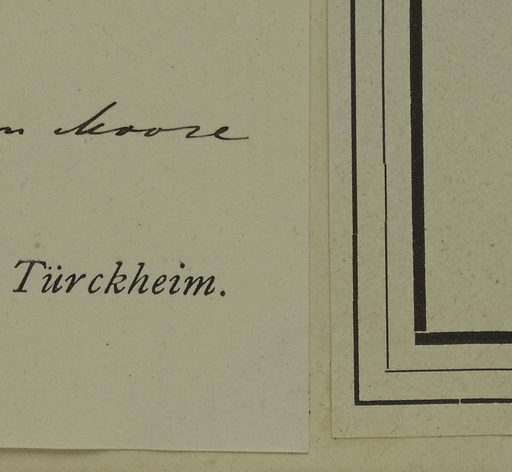 Moore
Türckheim.